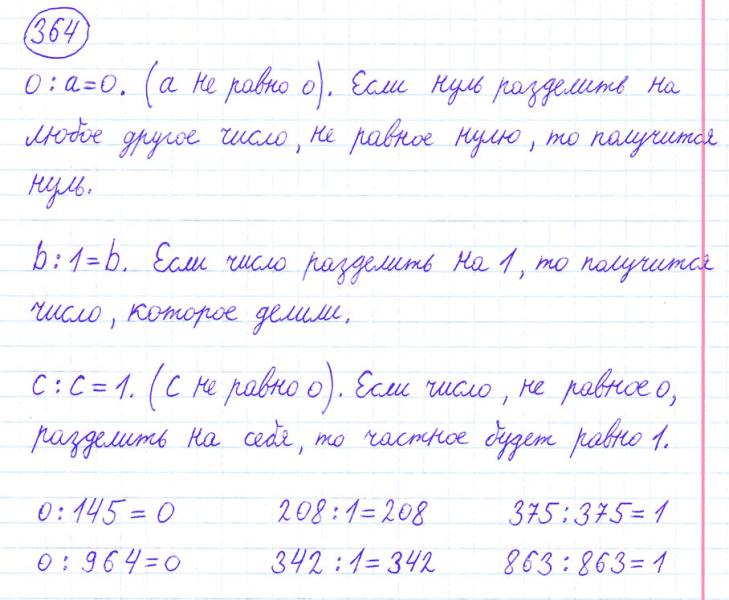 364
0 : a = 0. (a не равно 0). Если нуль разделить на
любое другое число, не равное нулю, то получится
нуль.
b : 1 = b. Если число разделить на 1, то получится
число, которое делили.
c : c = 1. (c не равно 0). Если число, не равное 0,
разделить на себя, то частное будет равно 1.
0 : 145 = 0 208 : 1 = 208 375 : 375 = 1
0 : 964 = 0 342 : 1 = 342 863 : 863 = 1